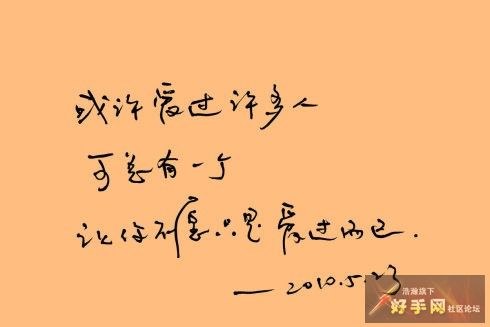 或许爱过许多人
可总有一个
让你不愿只是爱过而已.
—2010.5.23
浩瀚旗下
好手网社区论坛